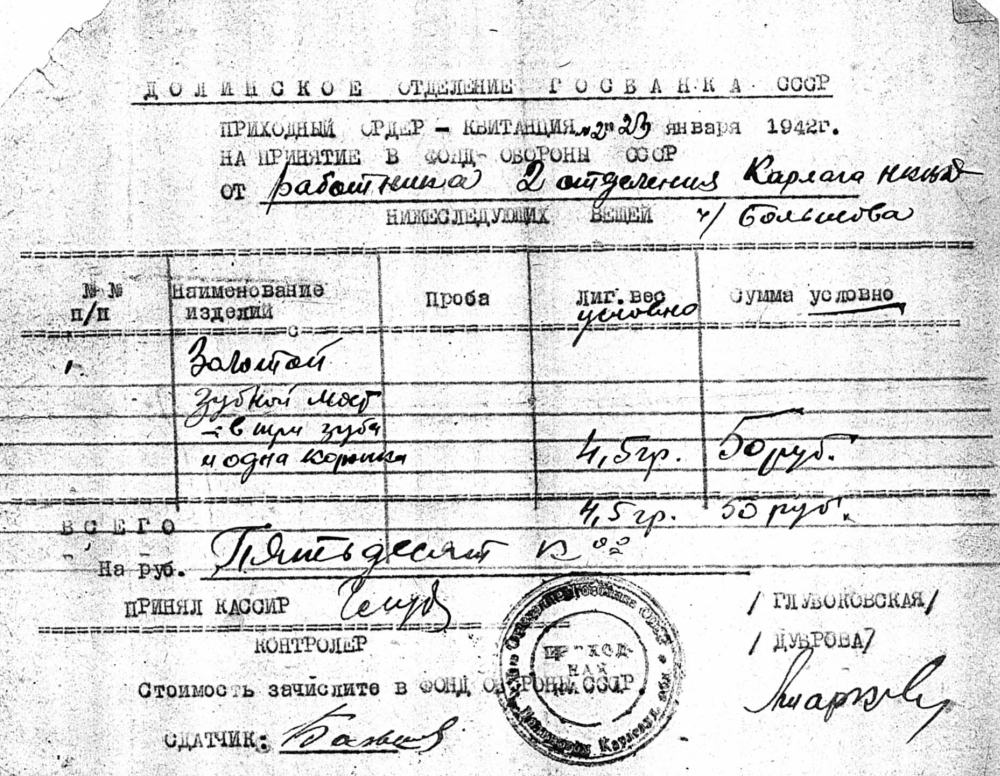 ДОЛИНСКОЕ ОТДЕЛЕНИЕ ГОСБАНКА СССР
ПРИХОДНЫЙ ОРДЕР - КВИТАНЦИЯ 23 января 1942г.
НА ПРИНЯТИЕ В ФОНД ОБОРОНЫ СССР
ОТ работника 2 отделения Карлага НКВД
НИЖЕСЛЕДУЮЩИХ ВЕЩЕЙ
№ № п/п Наименование изделий Проба Лиг. вес условно Сумма условно
1. Золотой
зубной мост
- в три зуба
и одна коронка 4,5гр. 50руб.
ВСЕГО 4,5гр. 50 руб.
На руб. Пятьдесят
ПРИНЯЛ КАССИР /ГЛУБОКОВСКАЯ/
КОНТРОЛЕР /ДУБРОВА/
ПРИХОДНАЯ
Стоимость зачислите в ФОНД ОБОРОНЫ СССР
СДАТЧИК: